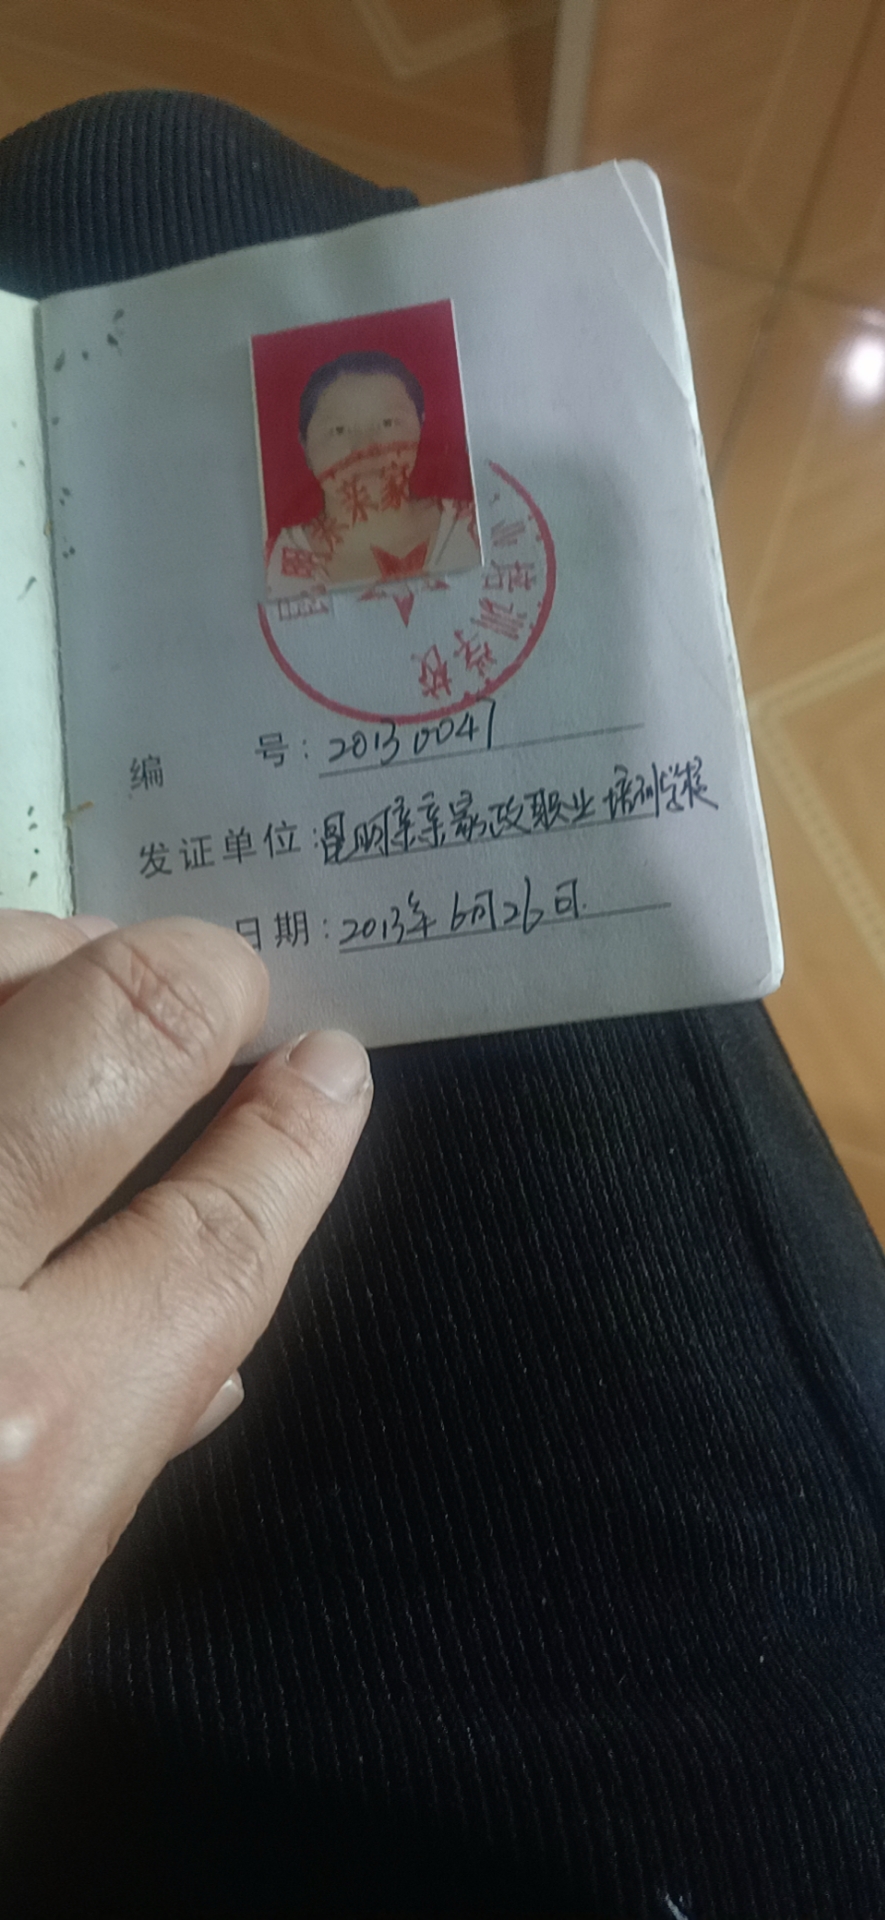 昆明亲亲家政职业培训学校
编 号：20130047
发证单位：昆明亲亲家政职业培训学校
日期：2013年6月26日.